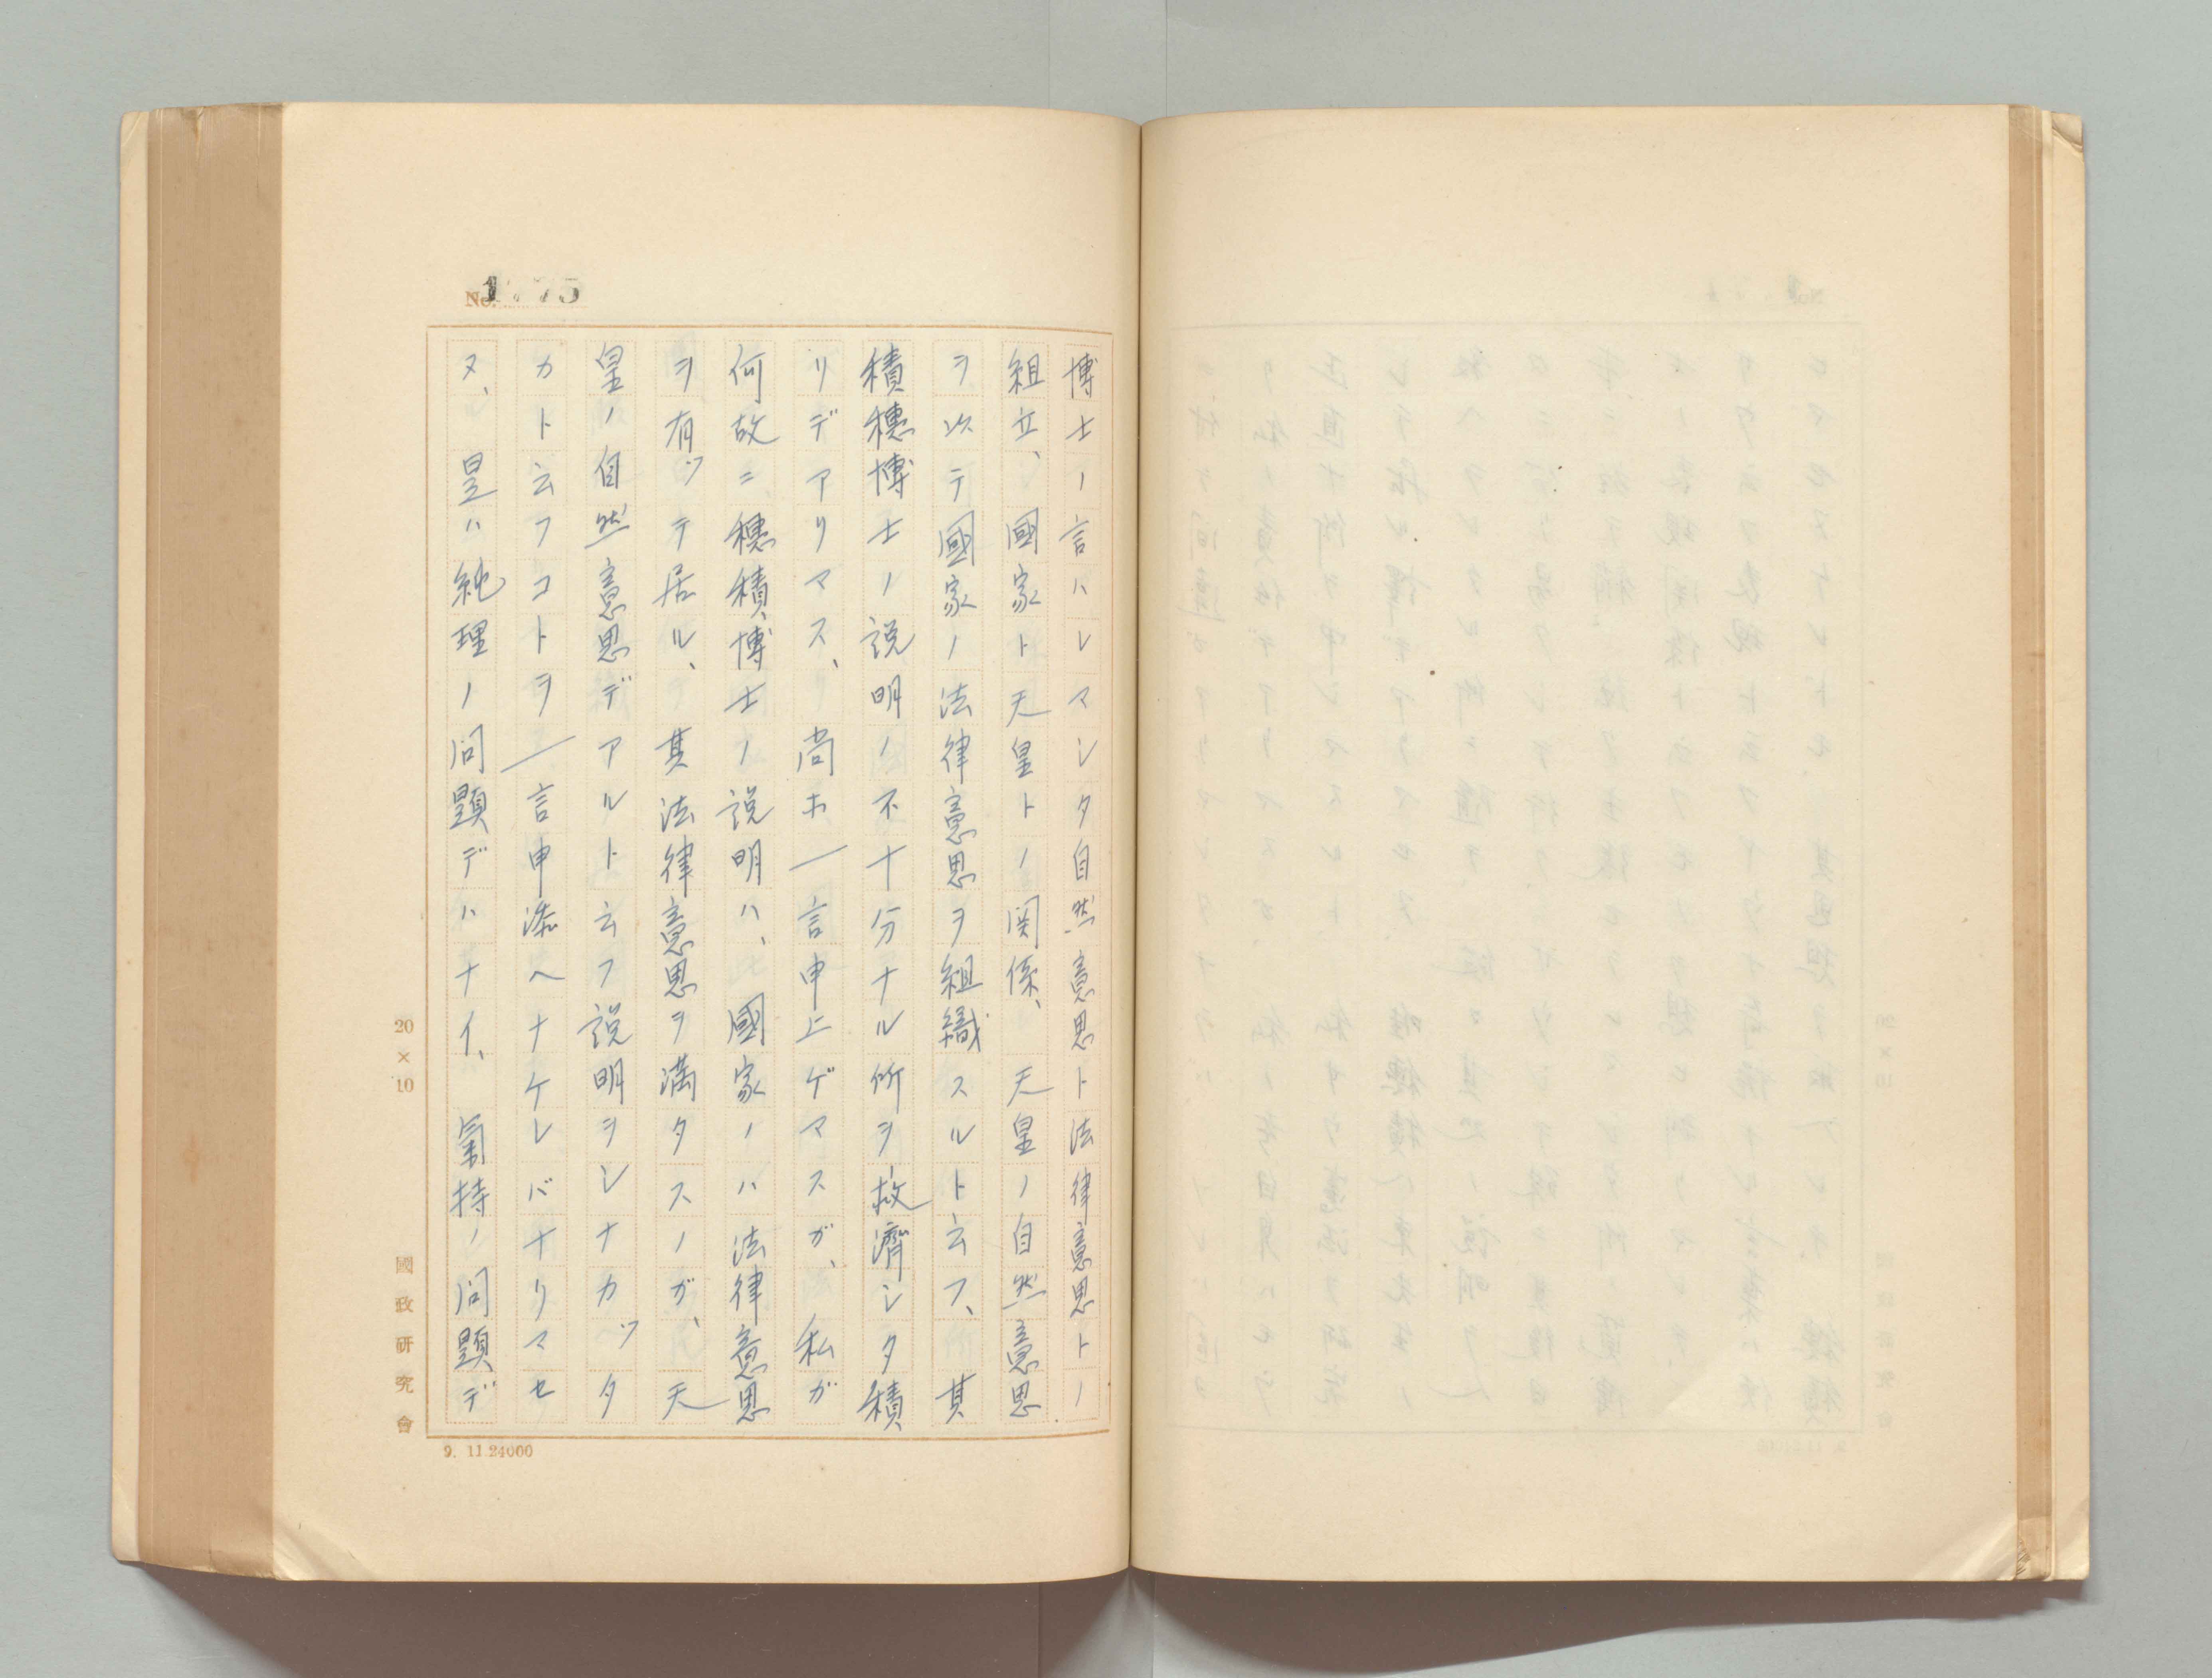 博士ノ言ハレマシタ自然意思ト法律意思トノ
組立、國家ト天皇トノ関係、天皇ノ自然意思
ヲ以テ國家ノ法律意思ヲ組織スルト云フ、其
積穂博士ノ説明ノ不十分ナル所ヲ救濟シタ積
リデアリマス、尚ホ一言申上ゲマスガ、私ガ
何故ニ穂積博士ノ説明ハ、國家ノハ法律意思
ヲ有ッテ居ル、其法律意思ヲ満タスノガ、天
皇ノ自然意思デアルト云フ説明ヲシナカッタ
カト云フコトヲ一言申添ヘナケレバナリマセ
ヌ、是ハ純理ノ問題デハナイ、氣持ノ問題デ
No.
20×10
國政研究會
9. 11.24000